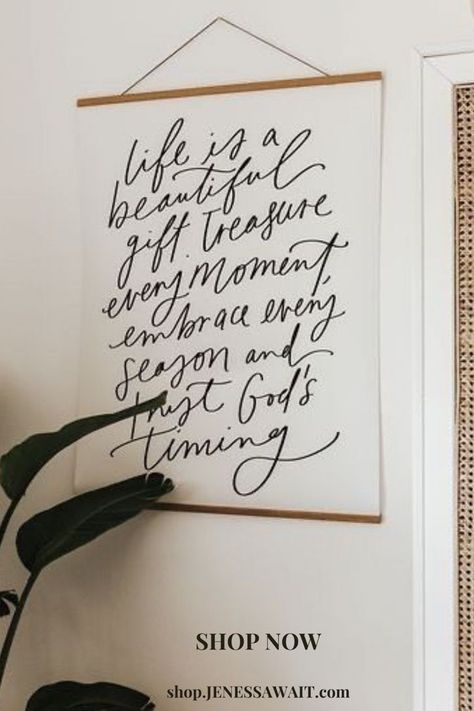 life is a
beautiful
gift. Treasure
every moment,
embrace every
season and
trust God's
timing
SHOP NOW
shop.JENESSAWAIT.com